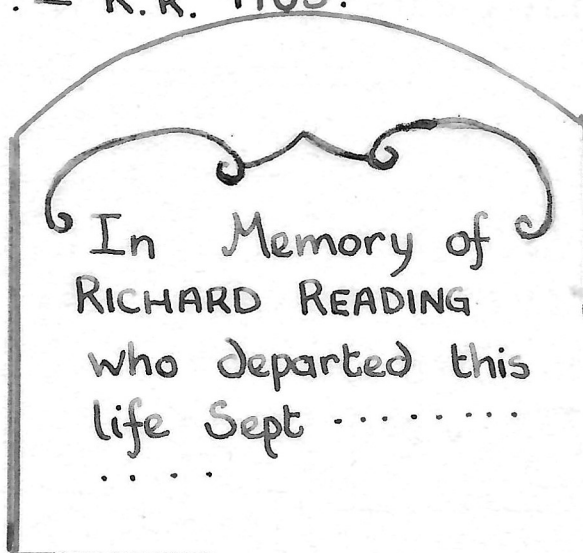 . — R.R. 1765.
In Memory of
RICHARD READING
who departed this
life Sept .........
.....